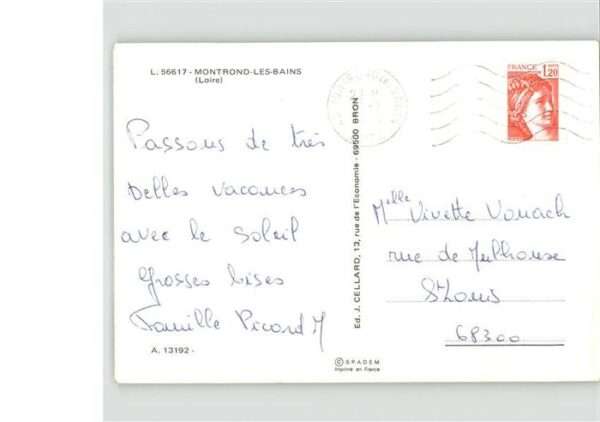 L. 56617 - MONTROND-LES-BAINS
(Loire)
FRANCE
1,20
Passons de très
belles vacances
avec le soleil
Grosses bises
Famille Picard M
A. 13192 -
Ed. J. CELLARD, 13, rue de l'Economie - 69500 BRON
Melle Vivette Vonach
rue de Mulhouse
St Louis
68300
© SPADEM
Imprimé en France